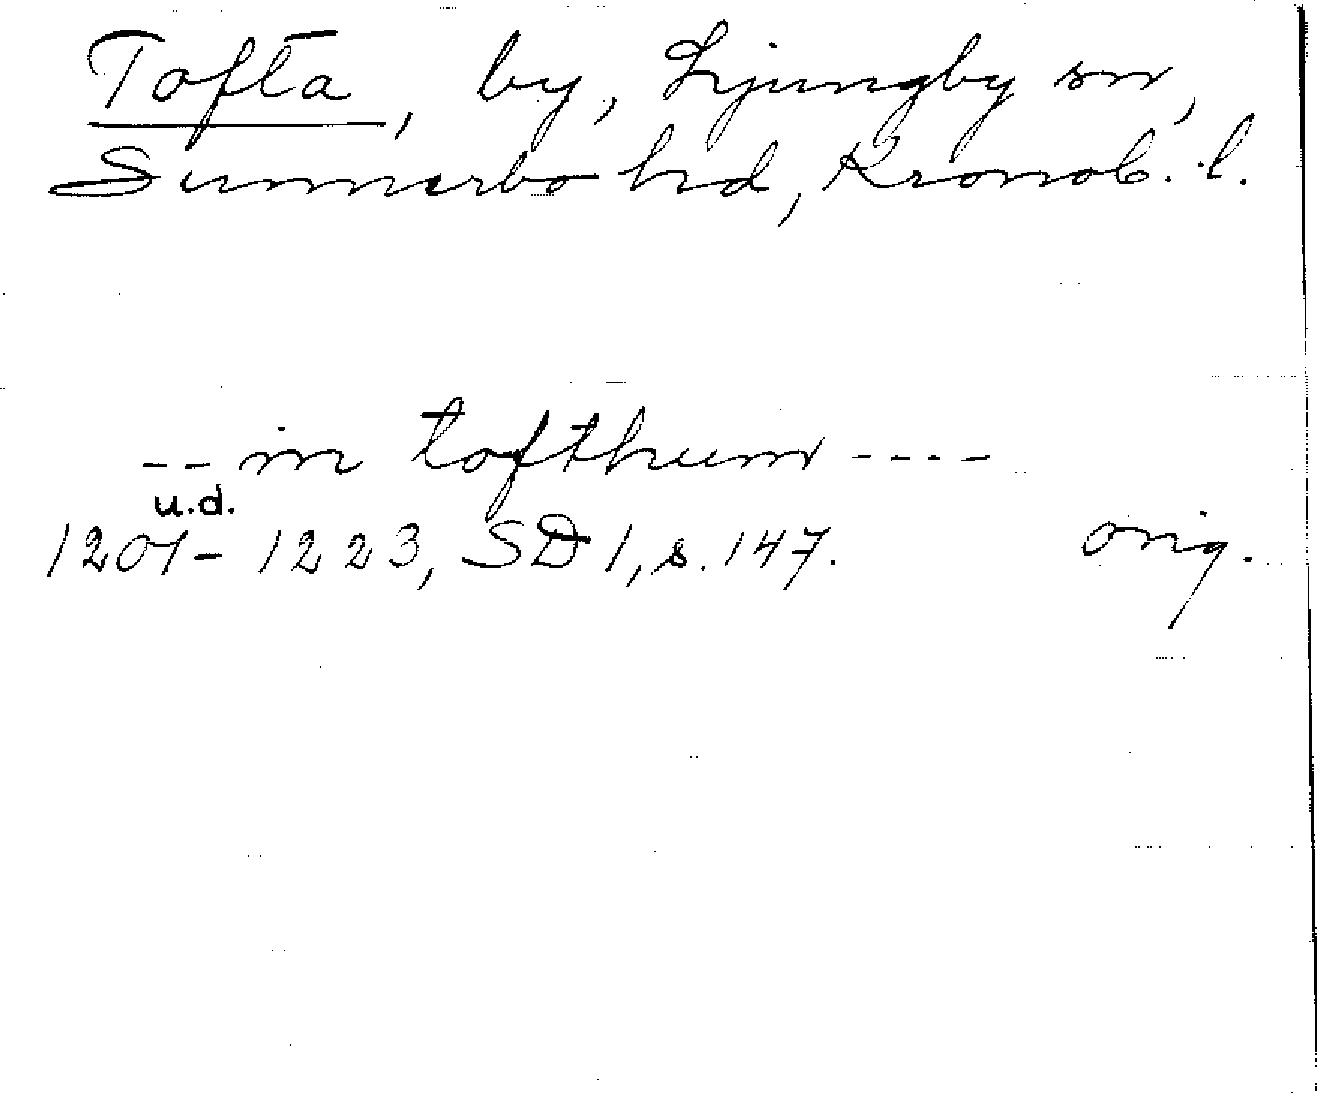 Tofta, by, Ljungby sn,
Sunnerbo hd, Kronob. l.
-- in tofthum ----
u.d.
1201-1223, SD 1, s. 147. orig.